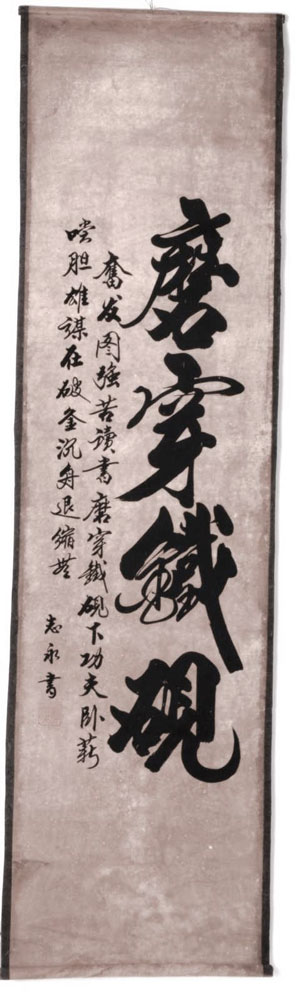 磨穿鐵硯
奮发图强苦讀書磨穿鐵硯下功夫卧薪
嚐胆雄謀在破釜沉舟退縮無
志永書